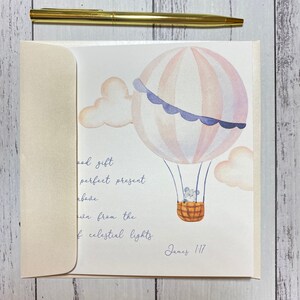 gift
perfect present
above
from the
of celestial lights
James 1:17